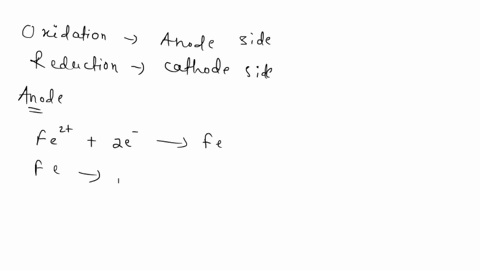 Oxidation → Anode side
Reduction → cathode side
Anode
Fe²⁺ + 2e⁻ → fe
fe →